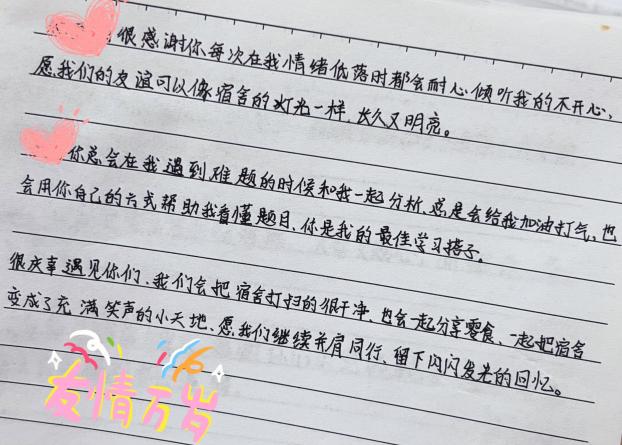 很感谢你每次在我情绪低落时都会耐心倾听我的不开心，
愿我们的友谊可以像宿舍的灯光一样，长久又明亮。
你总会在我遇到难题的时候和我一起分析，总是会给我加油打气，也
会用你自己的方式帮助我看懂题目，你是我的最佳学习搭子。
很庆幸遇见你们，我们会把宿舍打扫的很干净，也会一起分享零食，一起把宿舍
变成了充满笑声的小天地，愿我们继续并肩同行，留下闪闪发光的回忆。
友情万岁